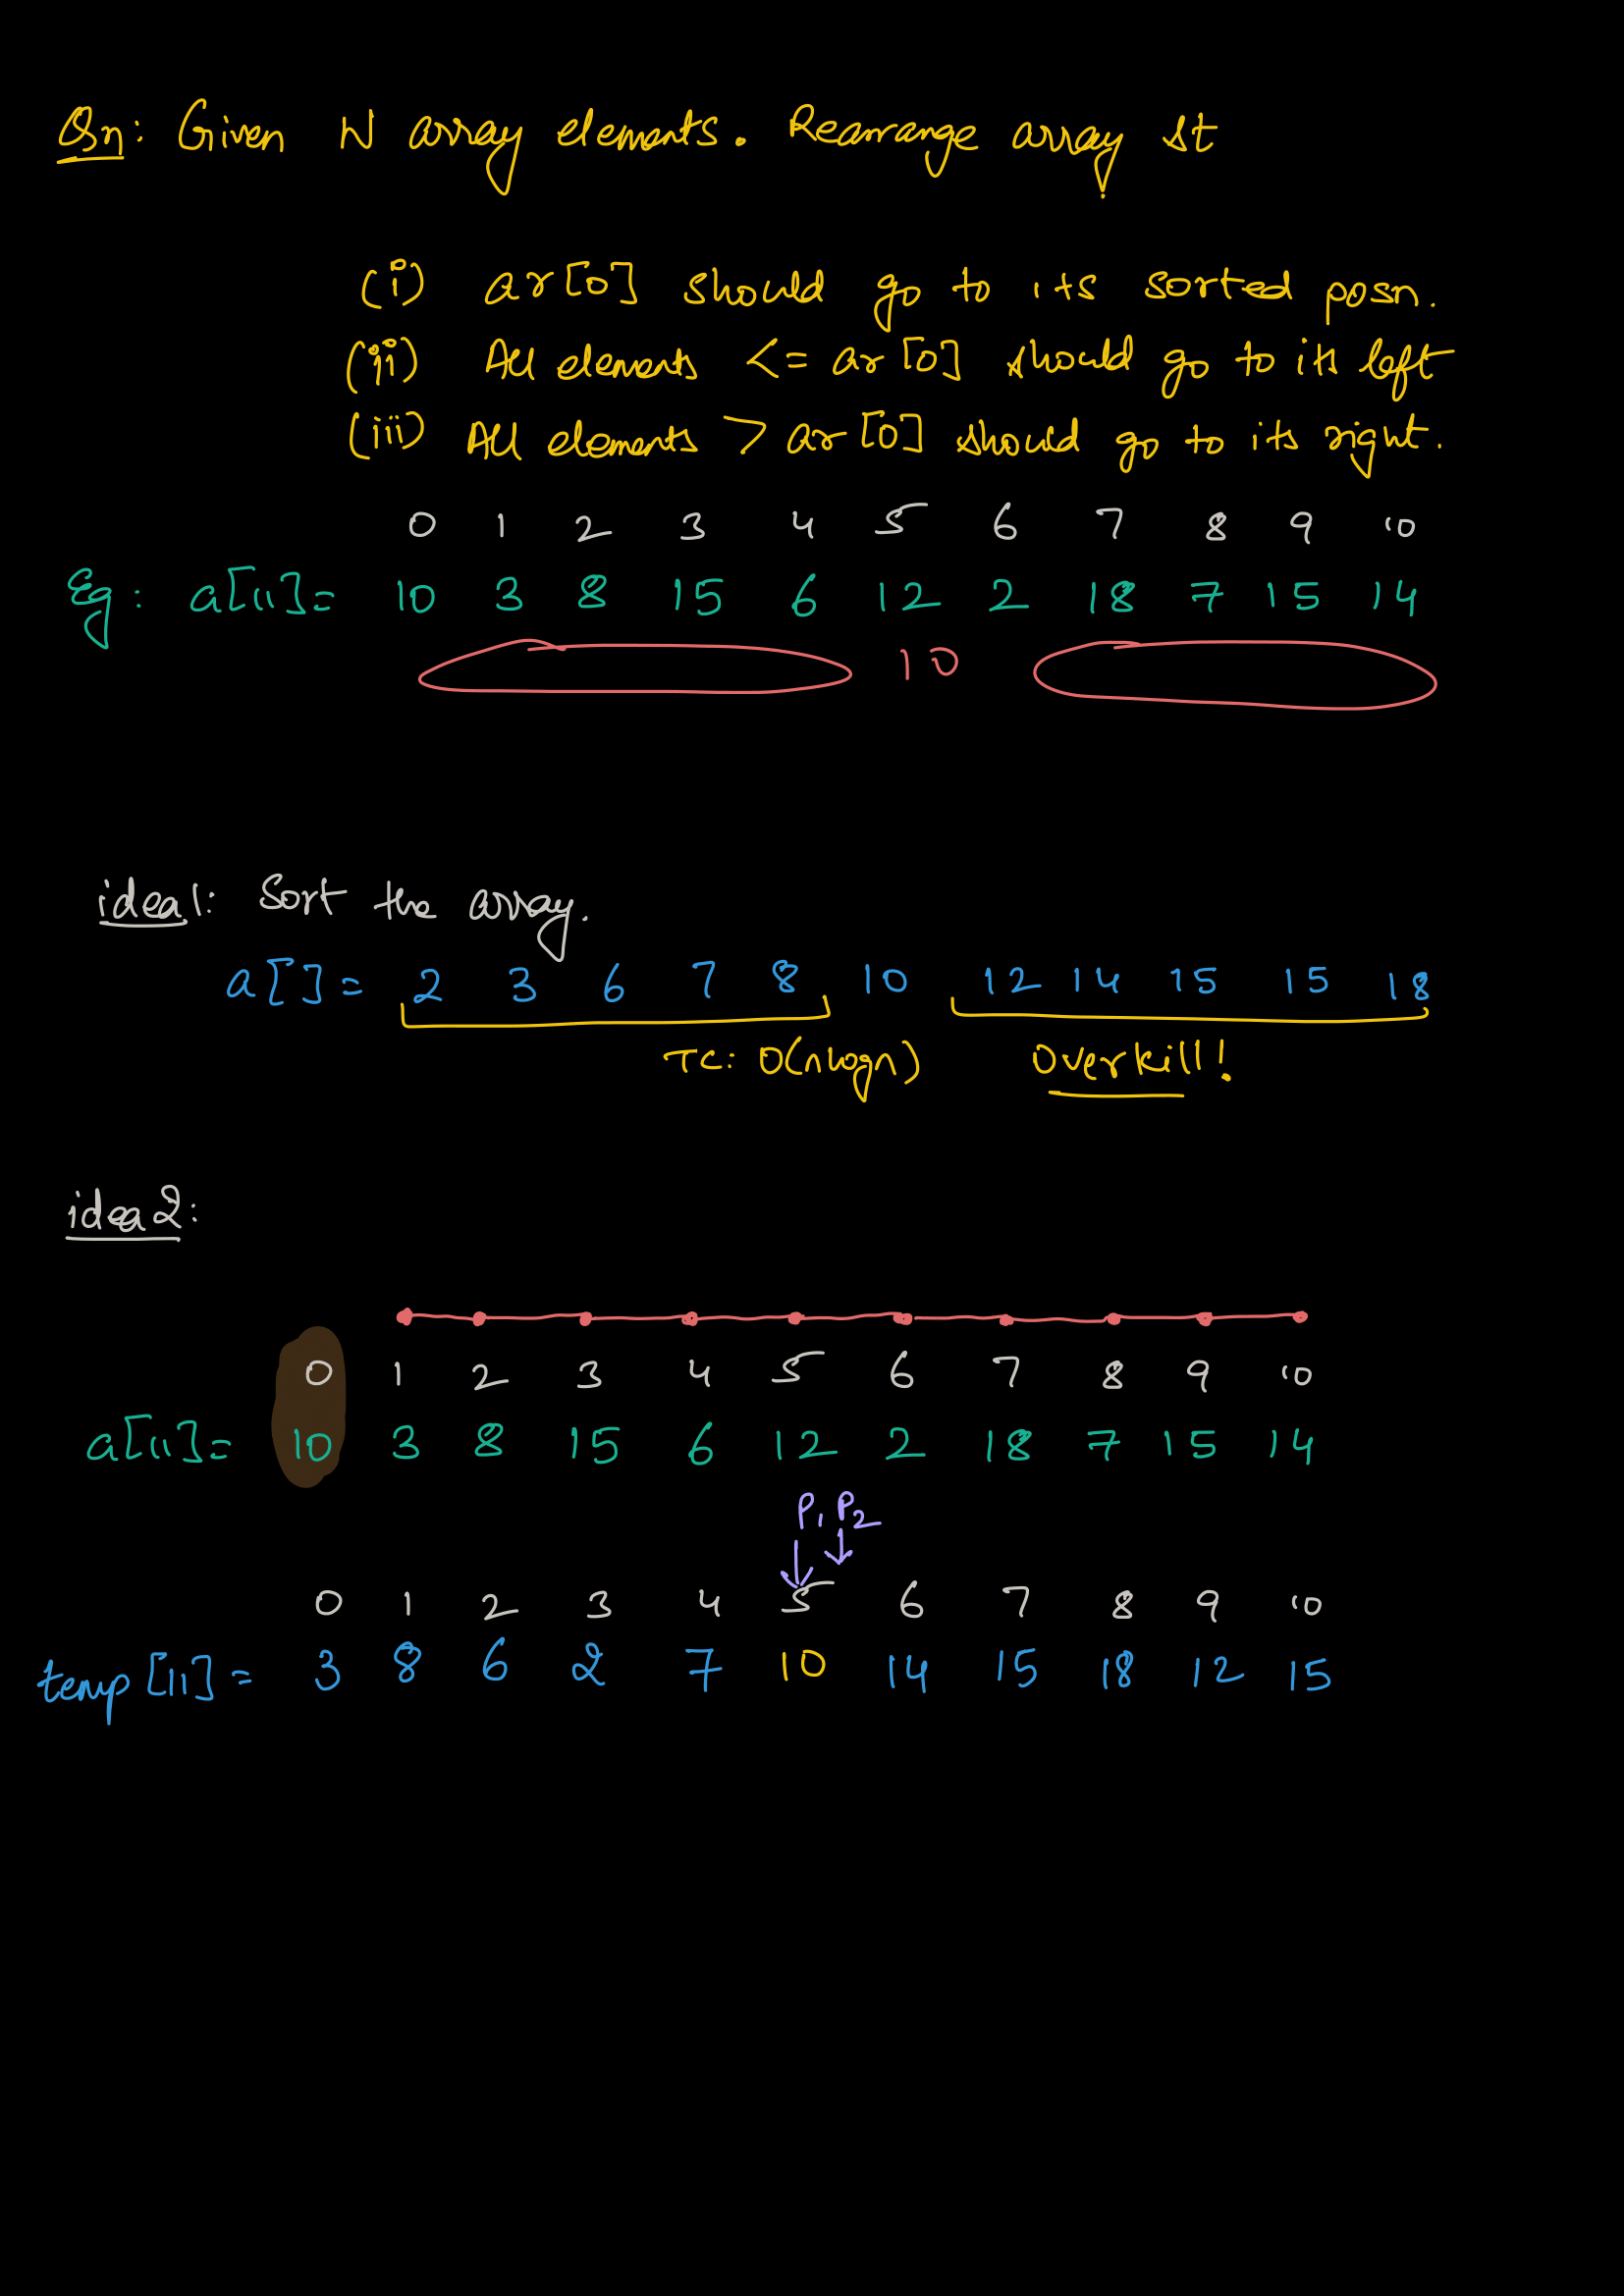 Qn: Given N array elements. Rearrange array st
(i) ar[0] should go to its sorted posn.
(ii) All elements <= ar[0] should go to its left
(iii) All elements > ar[0] should go to its right.
0 1 2 3 4 5 6 7 8 9 10
Eg: a[11]= 10 3 8 15 6 12 2 18 7 15 14
10
idea1: Sort the array.
a[]= 2 3 6 7 8 10 12 14 15 15 18
TC: O(nlogn) Overkill!
idea2:
0 1 2 3 4 5 6 7 8 9 10
a[11]= 10 3 8 15 6 12 2 18 7 15 14
P1 P2
0 1 2 3 4 5 6 7 8 9 10
temp[11]= 3 8 6 2 7 10 14 15 18 12 15